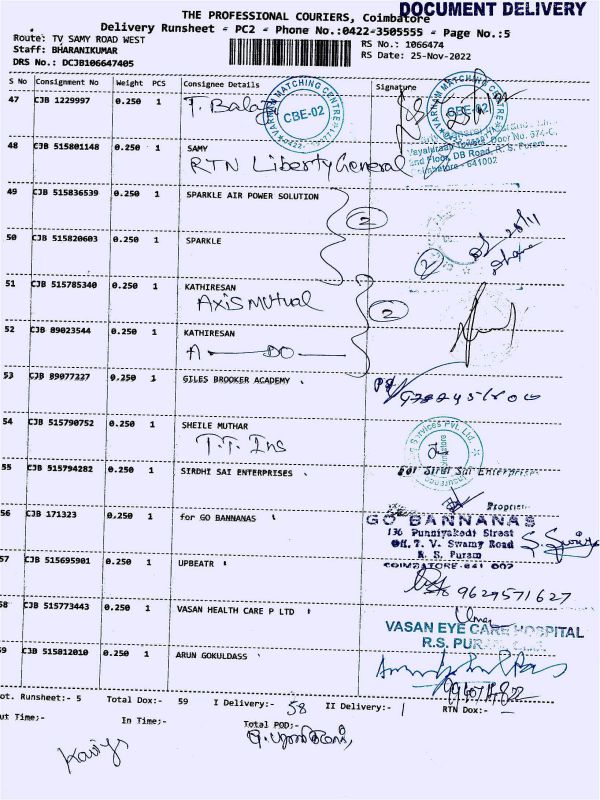 DOCUMENT DELIVERY
THE PROFESSIONAL COURIERS, Coimbatore
Delivery Runsheet - PC2 - Phone No.:0422-3505555 - Page No.:5
Route: TV SAMY ROAD WEST
RS No.: 1066474
Staff: BHARANIKUMAR
RS Date: 25-Nov-2022
DRS No.: DCJB106647405
S No Consignment No Weight PCS Consignee Details Signature
47 CJB 1229997 0.250 1 T. Balaji
VARNAM MATCHING CENTRE
CBE-02
VARNAM MATCHING CENTRE
CBE-02
48 CJB 515801148 0.250 1 SAMY
RTN Liberty General
2nd Floor, DB Road, R. S. Puram
Coimbatore - 641002
49 CJB 515836539 0.250 1 SPARKLE AIR POWER SOLUTION
2
50 CJB 515820603 0.250 1 SPARKLE
2
51 CJB 515785340 0.250 1 KATHIRESAN
Axis Mutual
2
52 CJB 89023544 0.250 1 KATHIRESAN
A DO
53 CJB 89077227 0.250 1 GILES BROOKER ACADEMY
54 CJB 515790752 0.250 1 SHEILE MUTHAR
T.T. Ins
55 CJB 515794282 0.250 1 SIRDHI SAI ENTERPRISES
56 CJB 171323 0.250 1 for GO BANNANAS
GO BANNANAS
136 Punniyakodi Street
Off. T. V. Swamy Road
R. S. Puram
COIMBATORE-641 002
57 CJB 515695901 0.250 1 UPBEATR
9629571627
58 CJB 515773443 0.250 1 VASAN HEALTH CARE P LTD
VASAN EYE CARE HOSPITAL
R.S. PURAM
59 CJB 515812010 0.250 1 ARUN GOKULDASS
Tot. Runsheet:- 5 Total Dox:- 59 I Delivery:- 58 II Delivery:- 1 RTN Dox:- —
Out Time:- In Time:- Total POD:-